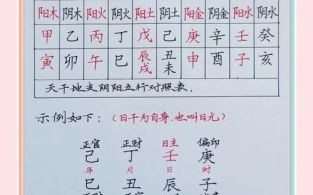 阳木 阴木 阳火 阴火 阳土 阴土 阳金 阴金 阳水 阴水
甲 乙 丙 丁 戊 己 庚 辛 壬 癸
寅 卯 午 巳 辰戌 丑未 申 酉 子 亥
天干地支阴阳五行对照表.
示例如下:(日干为自身.也叫日元)
正官 正财 日主 偏印
己 丁 壬 庚
年 月 日 时
巳 丑 辰 子